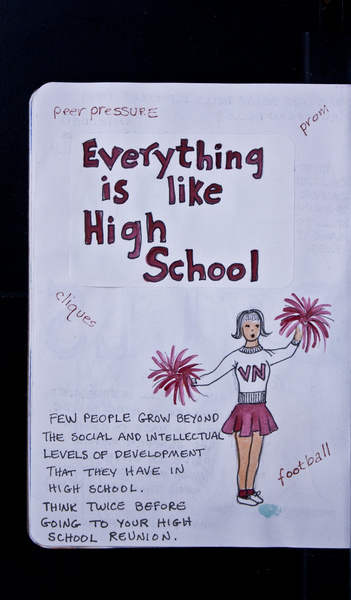 peer pressure
prom
Everything
is like
High
School
cliques
VN
FEW PEOPLE GROW BEYOND
THE SOCIAL AND INTELLECTUAL
LEVELS OF DEVELOPMENT
THAT THEY HAVE IN
HIGH SCHOOL.
THINK TWICE BEFORE
GOING TO YOUR HIGH
SCHOOL REUNION.
football